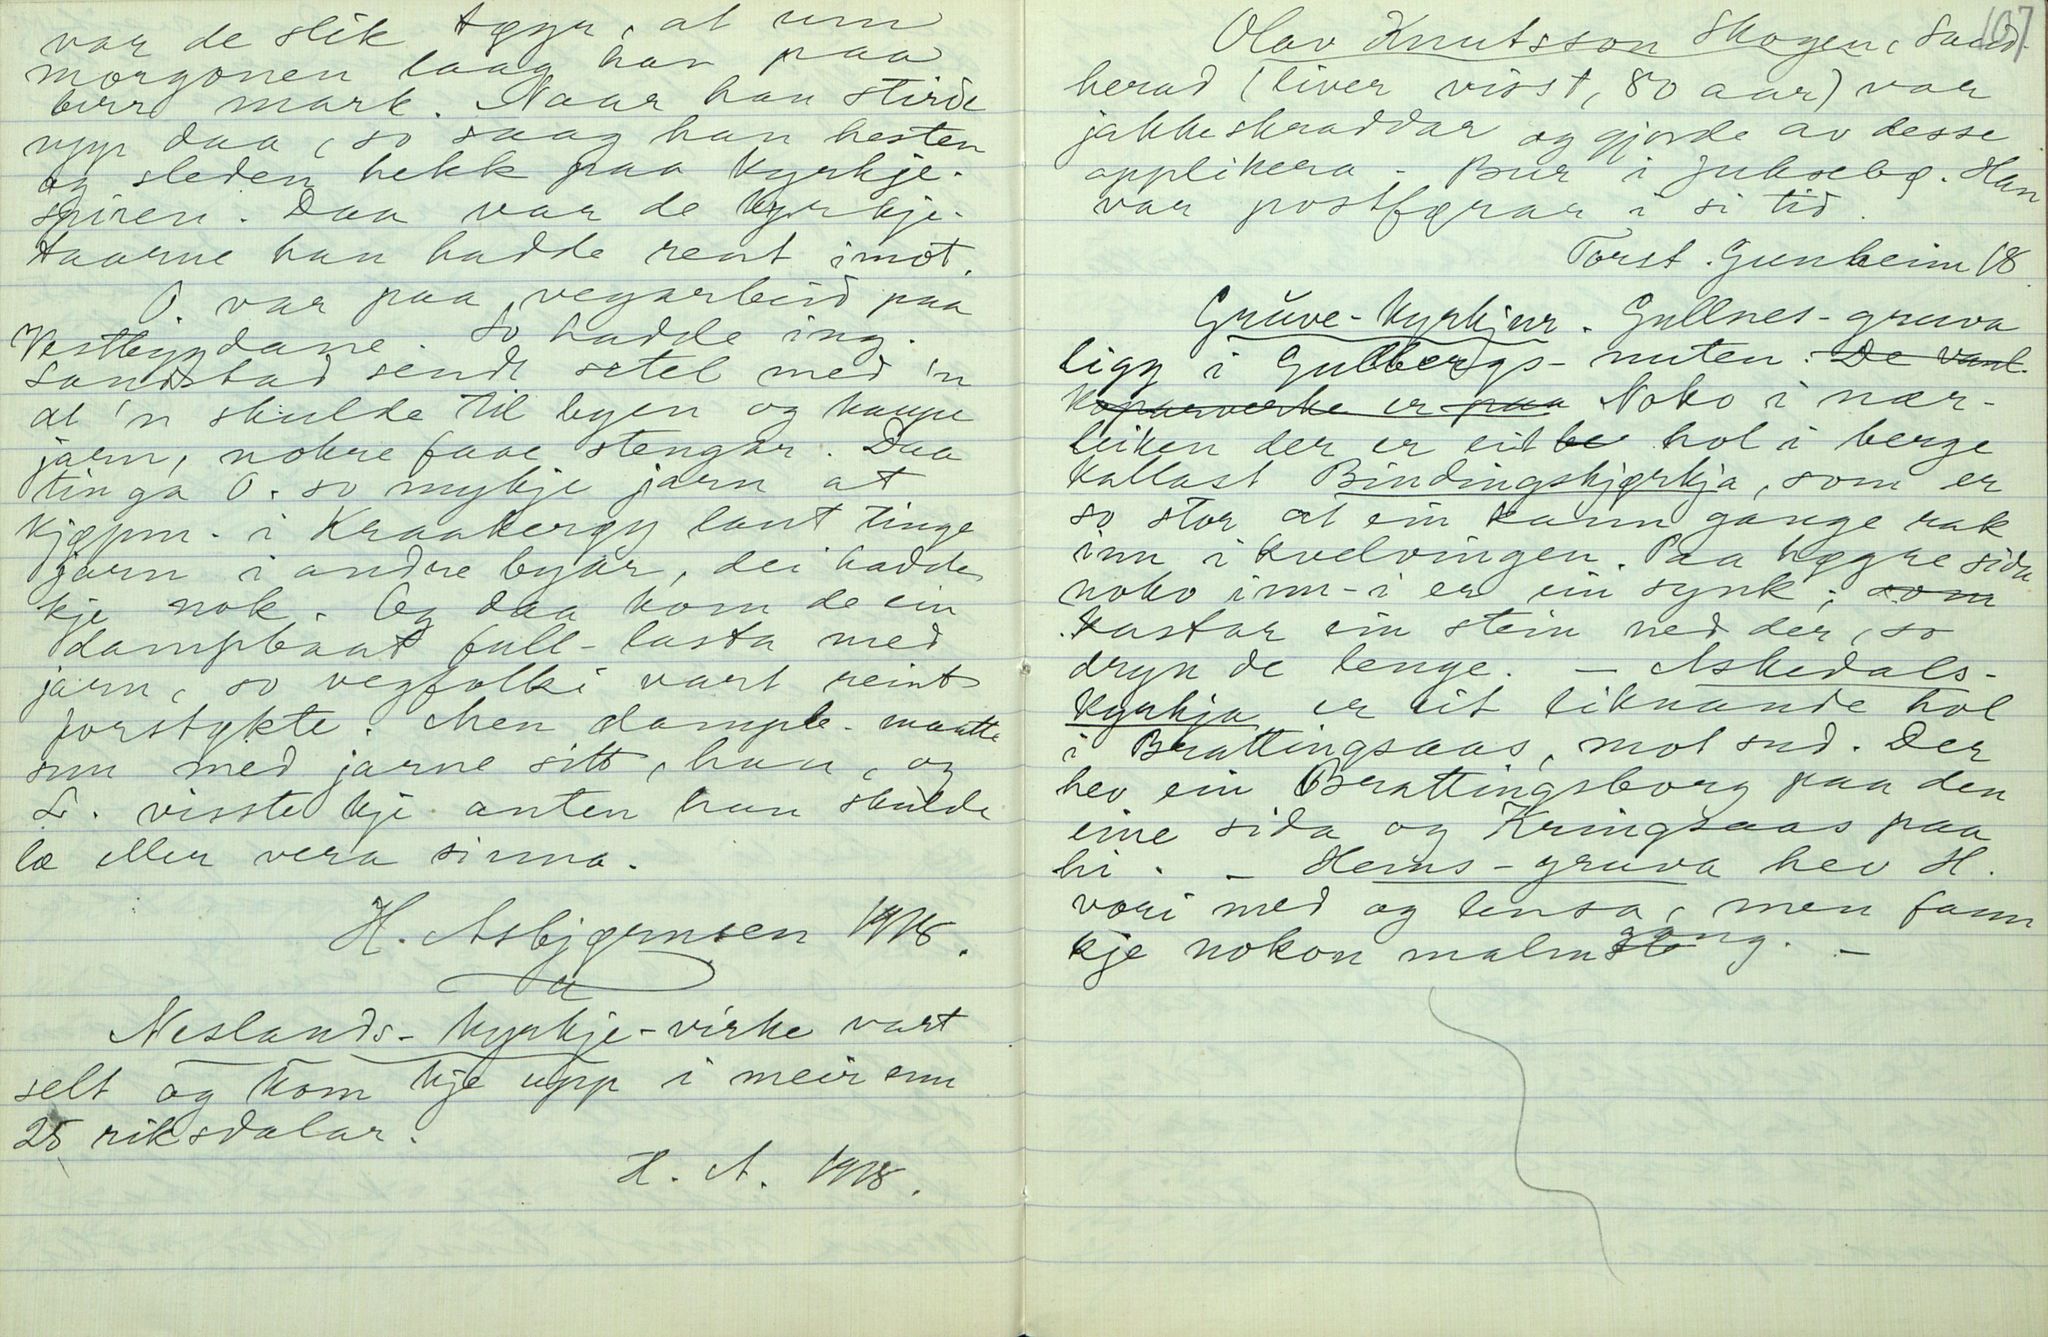 var de slik tøyr, at um
morgonen laag han paa
berr mark. Naar han stirde
upp daa, so saag han hesten
og sleden hekk paa kyrkje-
spiren. Daa var de kyrkje-
taarne han hadde rent imot.
O. var paa vegarbeid paa
Vestbygdane. So hadde ing.
Sandstad sendt setel med 'n
at 'n skulde til byen og kaupe
jarn, nokre faae stengar. Daa
tinga O. so mykje jarn at
kjøpm. i Kraakerøy laut tinge
jarn i andre byar, dei hadde
kje nok. Og daa kom de ein
dampbaat full-lasta med
jarn, so vegfolki vart reint
forstykte. Men dampb. maatte
snu med jarne sitt, han, og
S. visste kje anten han skulde
læ eller vera sinna.
H. Asbjørnsen 1918.
Neslands-kyrkje-virke vart
selt og kom kje upp i meir enn
25 riksdalar.
H. A. 1918.
107
Olav Knutsson Skogen, Saud-
herad (liver visst, 80 aar) var
jakkeskraddar og gjorde av desse
applikera. Bur i Juksebø. Han
var postførar i si tid.
Torst. Gunheim 18
Gruve-kyrkjur. Gullnes-gruva
ligg i Gullbergs-nuten. De vanl.
Koparverke er paa Noko i nær-
leiken der er eit be hol i berge
kallast Bindingskjørkja, som er
so stor at ein kann gange rak
inn i kvelvingen. Paa høgre sida
noko inn-i er ein synk; som
kastar ein stein ned der, so
dryn de lenge. — Askedals-
kyrkja er eit liknande hol
i Brattingsaas, mot sud. Der
hev ein Brattingsborg paa den
eine sida og Kringsaas paa
hi. — Hems-gruva hev H.
vori med og lensa, men fann
kje nokon malmgang. —